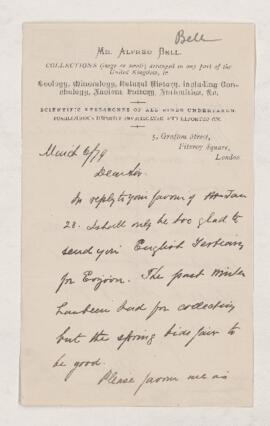 Bell
MR. ALFRED BELL.
COLLECTIONS (large or small) arranged in any part of the
United Kingdom, in
Geology, Mineralogy, Natural History, including Con-
chology, Ancient Pottery, Antiquities, &c.
SCIENTIFIC RESEARCHES OF ALL KINDS UNDERTAKEN.
INVESTIGATED AND REPORTED ON.
5, Grafton Street,
Fitzroy Square,
London
March 6/79
Dear Sir
In reply to your favour of
28. I shall only be too glad to
send you English Tertiary
for Eozoon. The past Winter
has been bad for collecting
but the spring bids fair to
be good.
Please favour me as